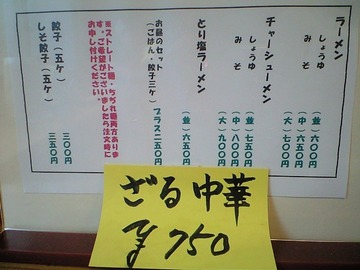 ラーメン
しょうゆ
みそ
(並)六〇〇円
(中)六五〇円
(大)七〇〇円
チャーシューメン
しょうゆ
みそ
(並)七五〇円
(中)八〇〇円
(大)九〇〇円
とり塩ラーメン
(並)六五〇円
お昼のセット
(ごはん・餃子三ケ)
プラス二五〇円
※ストレート麺・ちぢれ麺両方あります。ご希望がございましたら注文時に
お申し付けください。
餃子(五ケ)
三〇〇円
しそ餃子(五ケ)
三五〇円
ざる中華
¥750